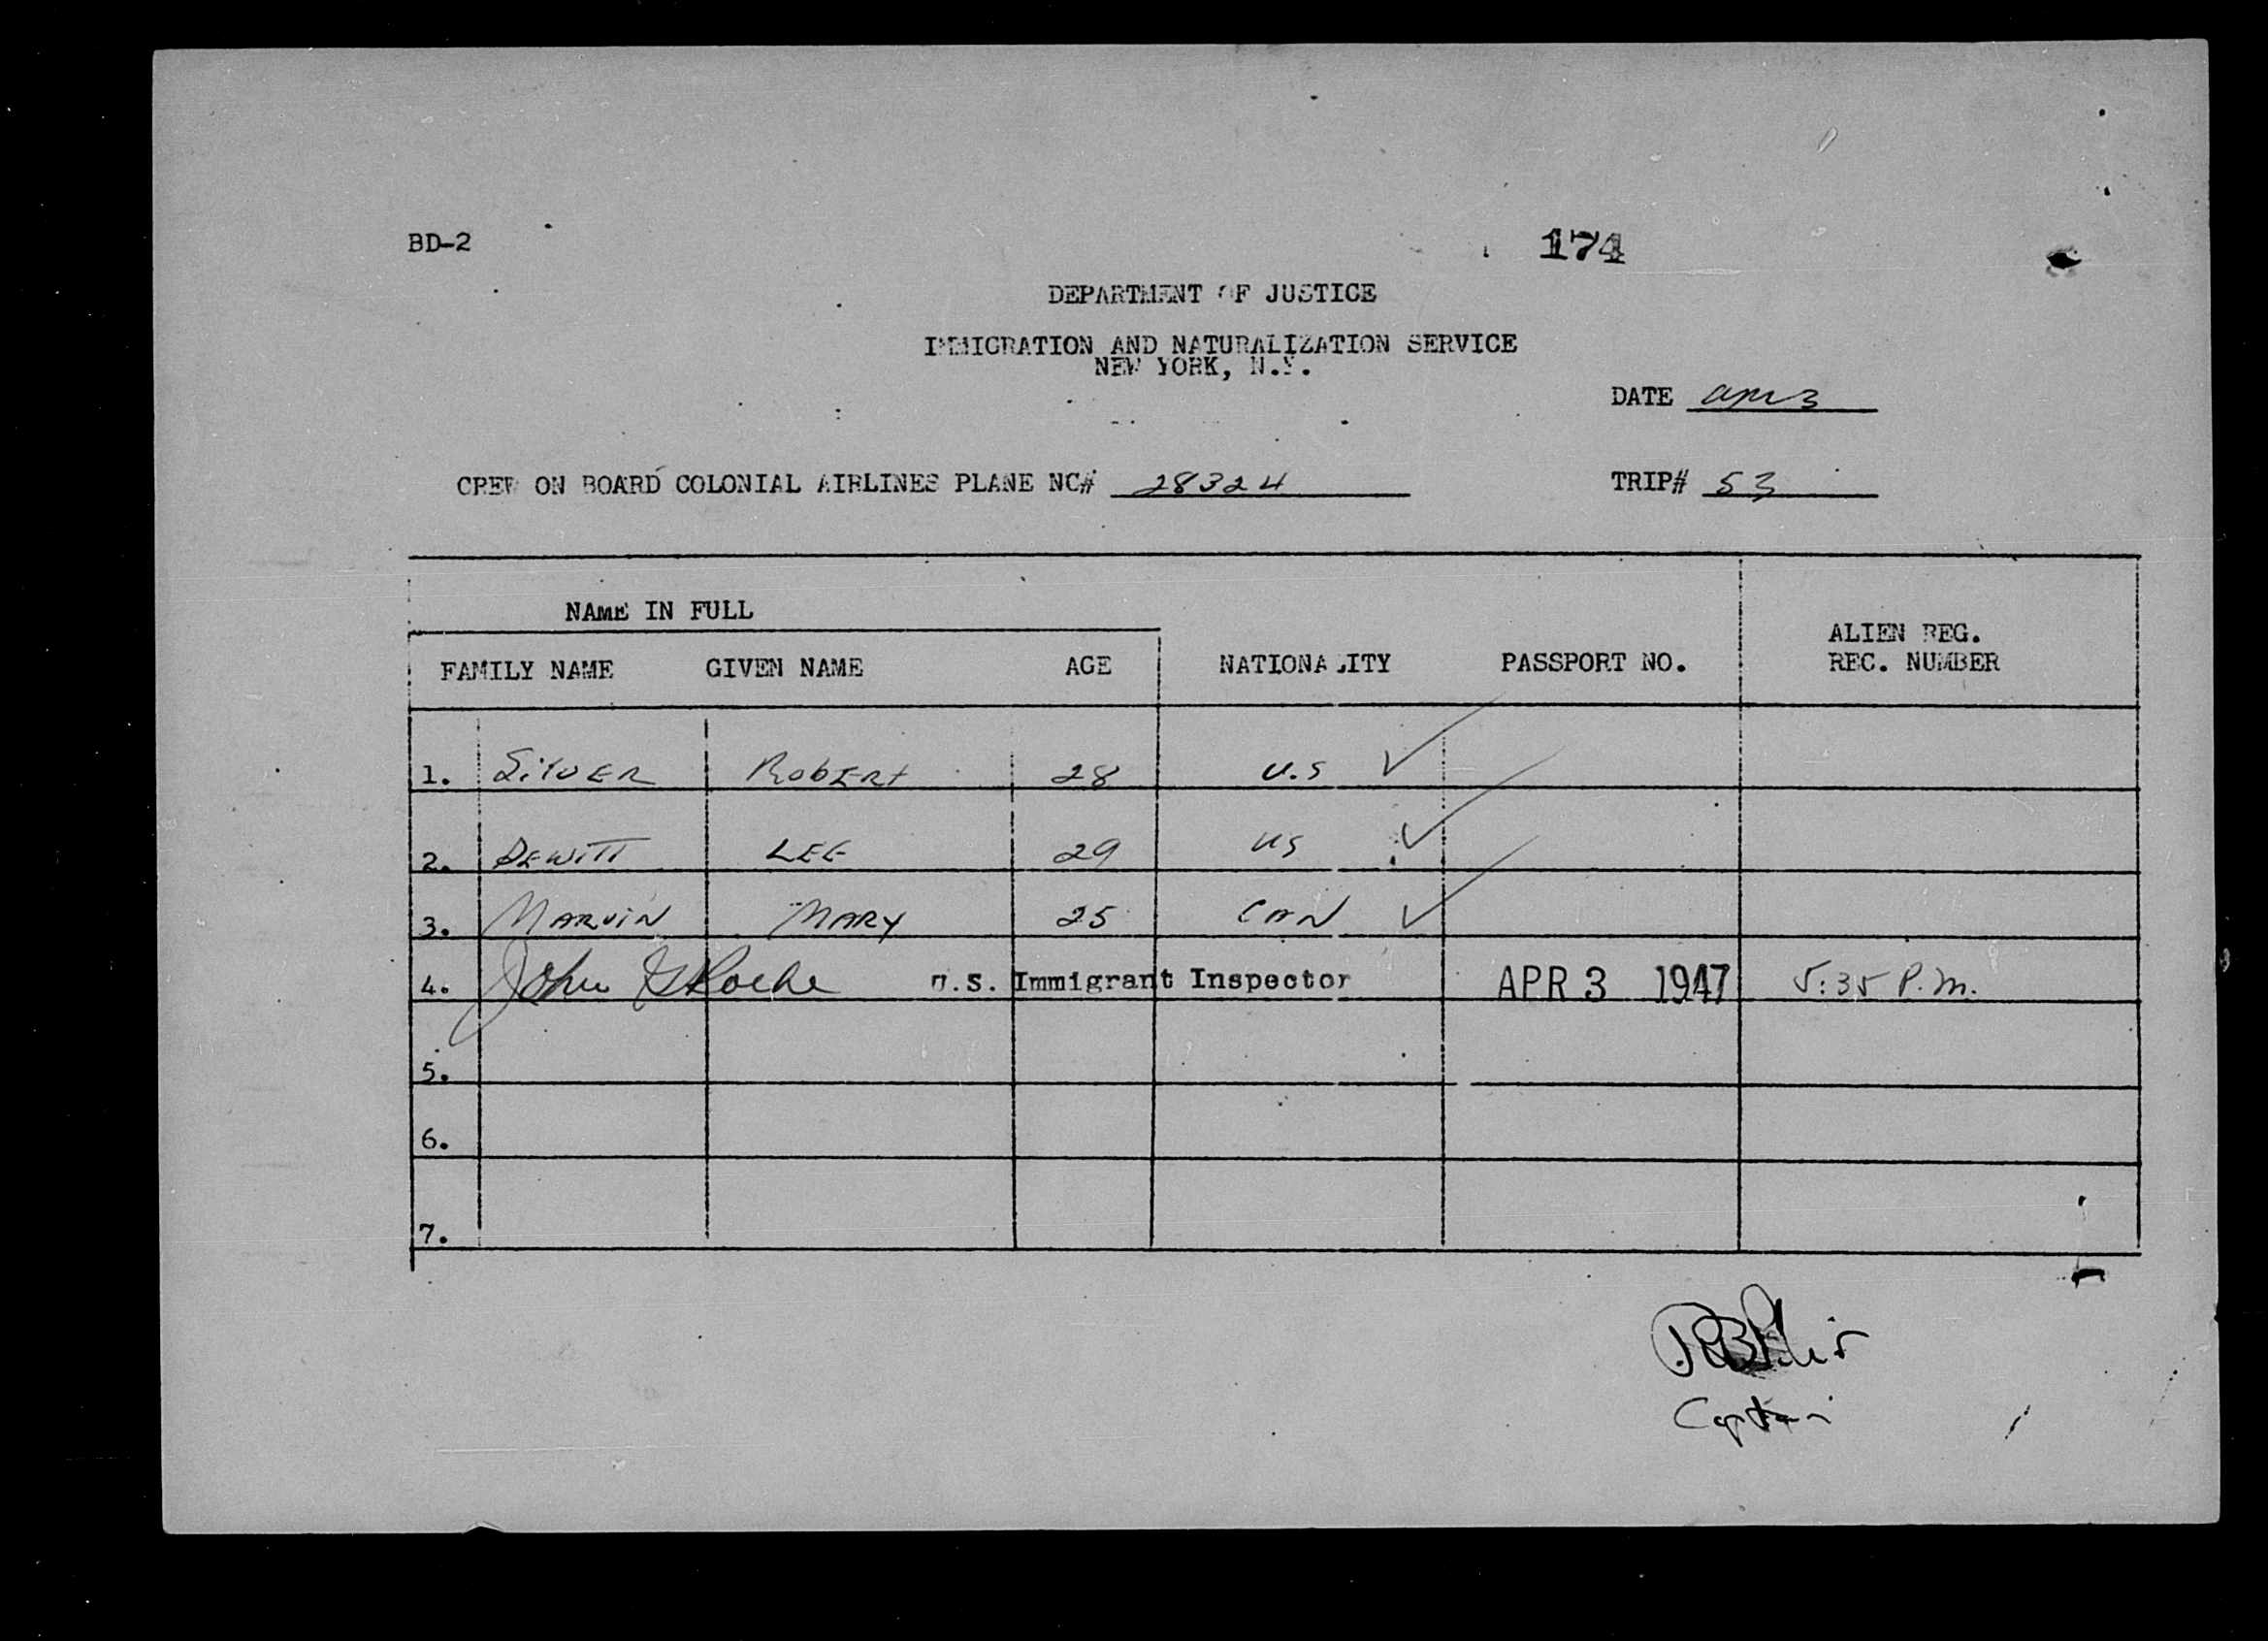 BD-2
174
DEPARTMENT OF JUSTICE
IMMIGRATION AND NATURALIZATION SERVICE
NEW YORK, N.Y.
DATE Apr 3
CREW ON BOARD COLONIAL AIRLINES PLANE NC# 28324 TRIP# 53
NAME IN FULL
FAMILY NAME GIVEN NAME AGE NATIONALITY PASSPORT NO. ALIEN REG. REC. NUMBER
1. SilvER RobERt 28 U.S ✓
2. DEWITT LEE 29 US ✓
3. MARViN MARY 25 CAN ✓
4. John Roche U.S. Immigrant Inspector APR 3 1947 5:35 P.M.
5.
6.
7.
Captain